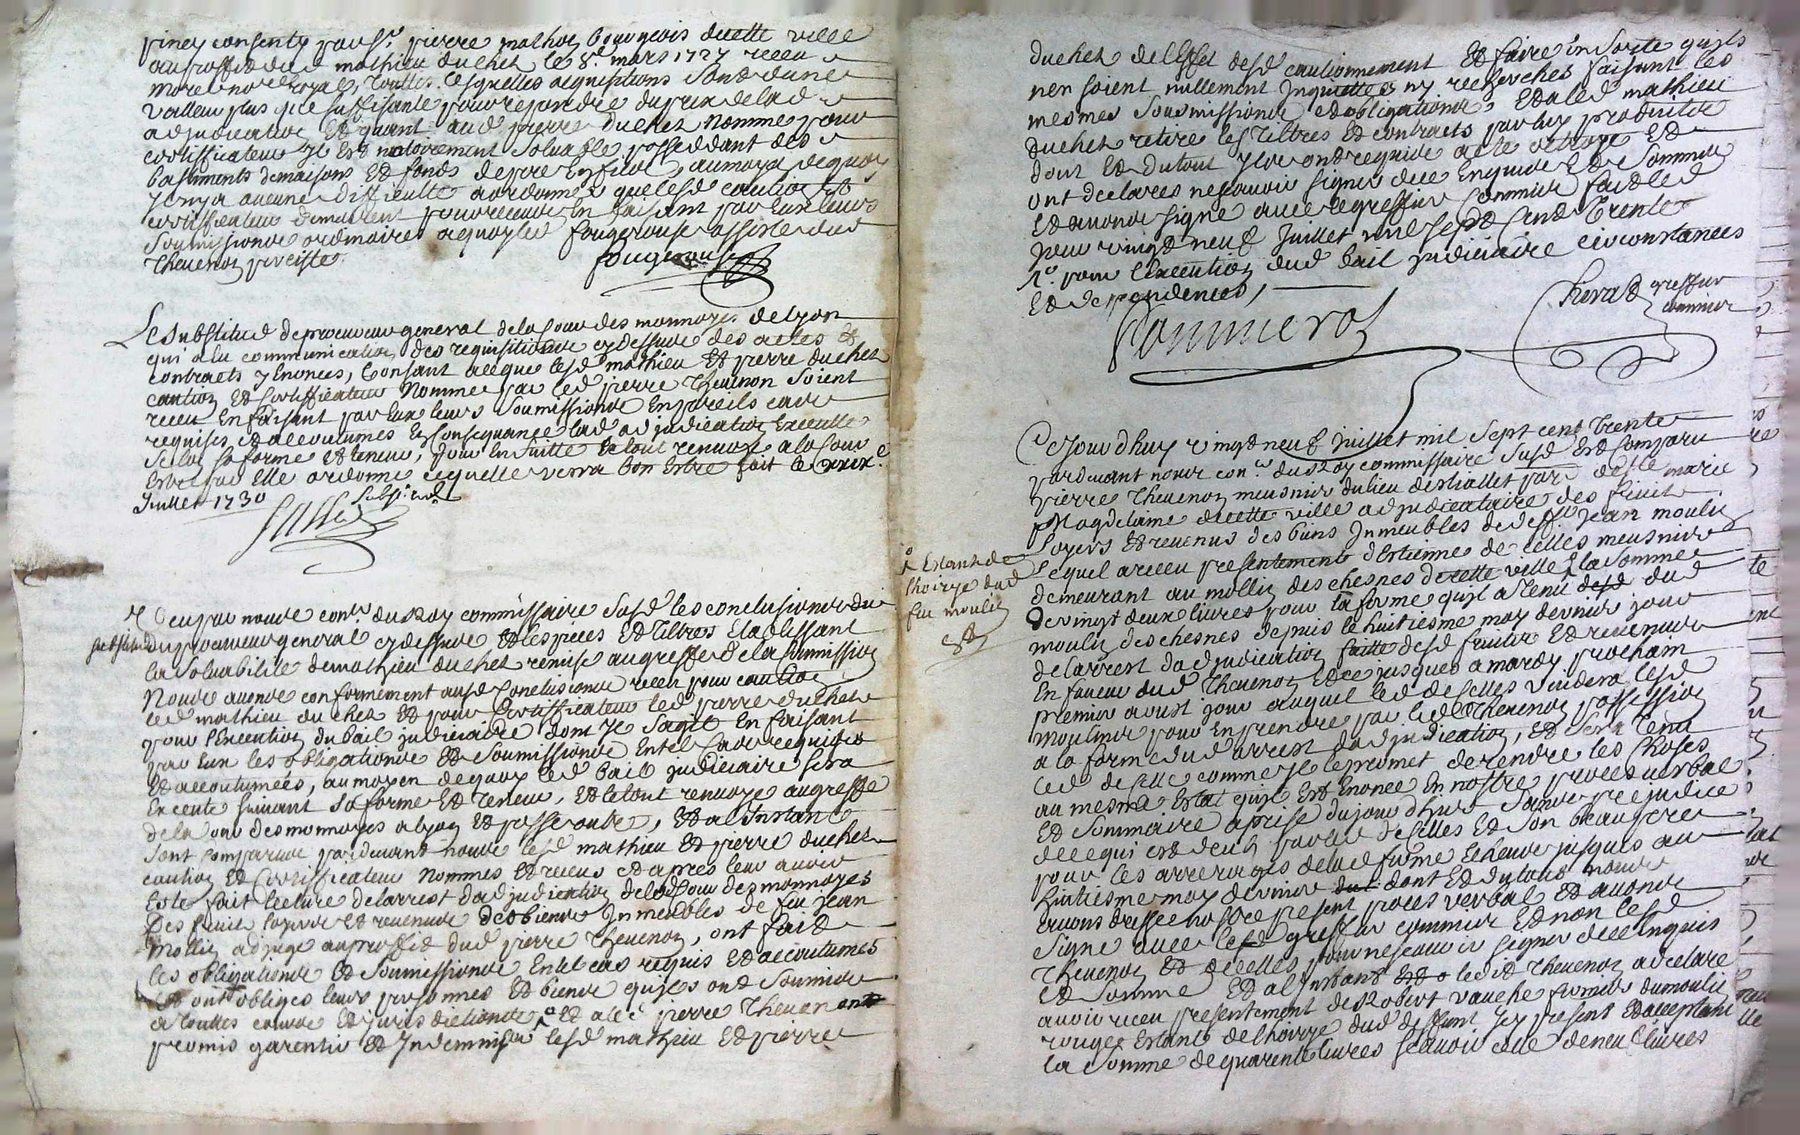 piney consenty par Sr. pierre mathon bourgeois de cette ville
au proffit dud mathieu duchez le 8e. mars 1727 receu
more nore royal, touttes lesquelles acquisitions sont d'une
valleur plus que suffisante pour repondre du prix de lad
adjudication Et quant aud pierre Duchez nomme pour
certifficateur Il Est notoirement solvable possedant des
bastiments de maisons Et fonds de pre au moyen dequoy
Il n'y a aucune difficulté a ordonner que lesd caution Et
certifficateur demeurent pour receus En faisant par Eux leurs
soumissions ordinaires aquoy led fougerouse assiste dud
Thevenon persiste
fougerouse
Le substitud de procureur general de la Cour des monnoyes de Lyon
qui a eu communication des requisitions cy dessus des actes Et
contracts y Enoncés, Consant a ce que lesd mathieu Et pierre duchez
caution Et Certifficateur Nommes par led pierre Thevenon soient
receu En faisant par Eux leurs soumissions En pareils cas
requises et accoutumés En Consequance lad adjudication Executée
selon sa forme Et teneur, pour En suitte le tout renvoyé a la Cour
Estre par Elle ordonné ce quelle verra bon Estre fait le xxix.e
Juillet 1730
Veu par nous conr. du Roy commissaire susd les conclusions du
substitud
du procureur general cy dessus Et les pieces Et tiltres Etablissant
la solvabilité de mathieu duchez remise au greffe de la Commission
Nous avons conformement ausd Conclusions receu pour caution
led mathieu duchez Et pour Certifficateur led pierre duchez
pour l'Execution du bail judiciaire dont Il s'agit En faisant
par Eux les obligations Et soumissions En tel Cas requises
Et accoutumées, au moyen dequoy led bail judiciaire sera
Executé suivant sa forme Et Teneur, Et le tout renvoyé au greffe
de la Cour des monnoyes a lyon Et passé outre, Et a l'Instant
sont comparus pardevant nous lesd mathieu Et pierre duchez
caution Et Certifficateur nommes Et receus Et apres leur avoir
Esté fait lecture de l'arrest d'adjudication de lad Cour des monnoyes
Des fruits loyers Et revenus des biens Immeubles de feu Jean
Mollin adjugé au proffit dud pierre Thevenon, ont fait
les obligations Et soumissions En tel cas requis Et accoutumés
Et ont obliges leurs personnes Et biens quils ont soumis
a touttes cours Et jurisdictions Et a led pierre Thevenon
promis garentir Et Indemniser lesd mathieu Et pierre
duchez de l'Effet desd cautionnement Et faire En sorte quils
n'en soient nullement Inquiettés ny recherchés faisant les
mesmes soumissions Et obligations, Et a led mathieu
duchez retiré les tiltres Et contracts par luy produits
dont Et du tout Ils ont requis acte octroyé Et
ont declarés ne scavoir signer de ce Enquis Et Sommés
Et avons signé avec le greffier Commis fait led
jour vingt neuf Juillet mil sept Cent Trente
pour l'Execution dud bail judiciaire circonstances
Et dependences,
Pommerol
Cherat greffier
commis
Cejourd'huy vingt neuf Juillet mil sept cent trente
pardevant nous conr. du Roy commissaire susd Est Comparu
pierre Thevenon meusnier du lieu par dlle marie
Magdelaine de cette ville adjudicataire des fruits
loyers Et revenus des biens Immeubles de deffunt Jean moulin
Lequel a receu presentement d'Estienne de Celles meusnier
demeurant au mollin des chesnes de cette ville la somme
de vingt deux livres pour la ferme quil a tenu dud
moulin des chesnes depuis le huitiesme may dernier jour
de l'arrest d'adjudication faitte desd fruits Et revenus
En faveur dud Thevenon Et ce jusques a mardy prochain
premier aoust jour auquel led de Celles vuidera lesd
moulins pour En prendre par led Thevenon possession
a la forme dud arrest d'adjudication, Et sera tenu
led de Celle comme Il le promet de rendre les choses
au mesme Estat quil Est Enoncé En nostre procès verbal
Et sommaire aprise du jourd'huy sans prejudice
de ce qui est deu par led de Celles Et son beaufrere
pour les arrerages de lad ferme Echeus jusques au
huitiesme may dernier dont Et du tout nous
avons dressé nostre present procès verbal Et avons
signé avec led greffier commis Et non lesd
Thevenon Et de Celles pour ne scavoir signer de ce Enquis
Et Sommé Et a l'Instant ledit Thevenon a declaré
avoir receu presentement de Robert vauche fermier du moulin
rouge Estant de l'hoirye dud deffunt Icy present Et acceptant
la somme de quarente livres scavoir celle de neuf livres
Estant de
lhoirye dud
feu moulin